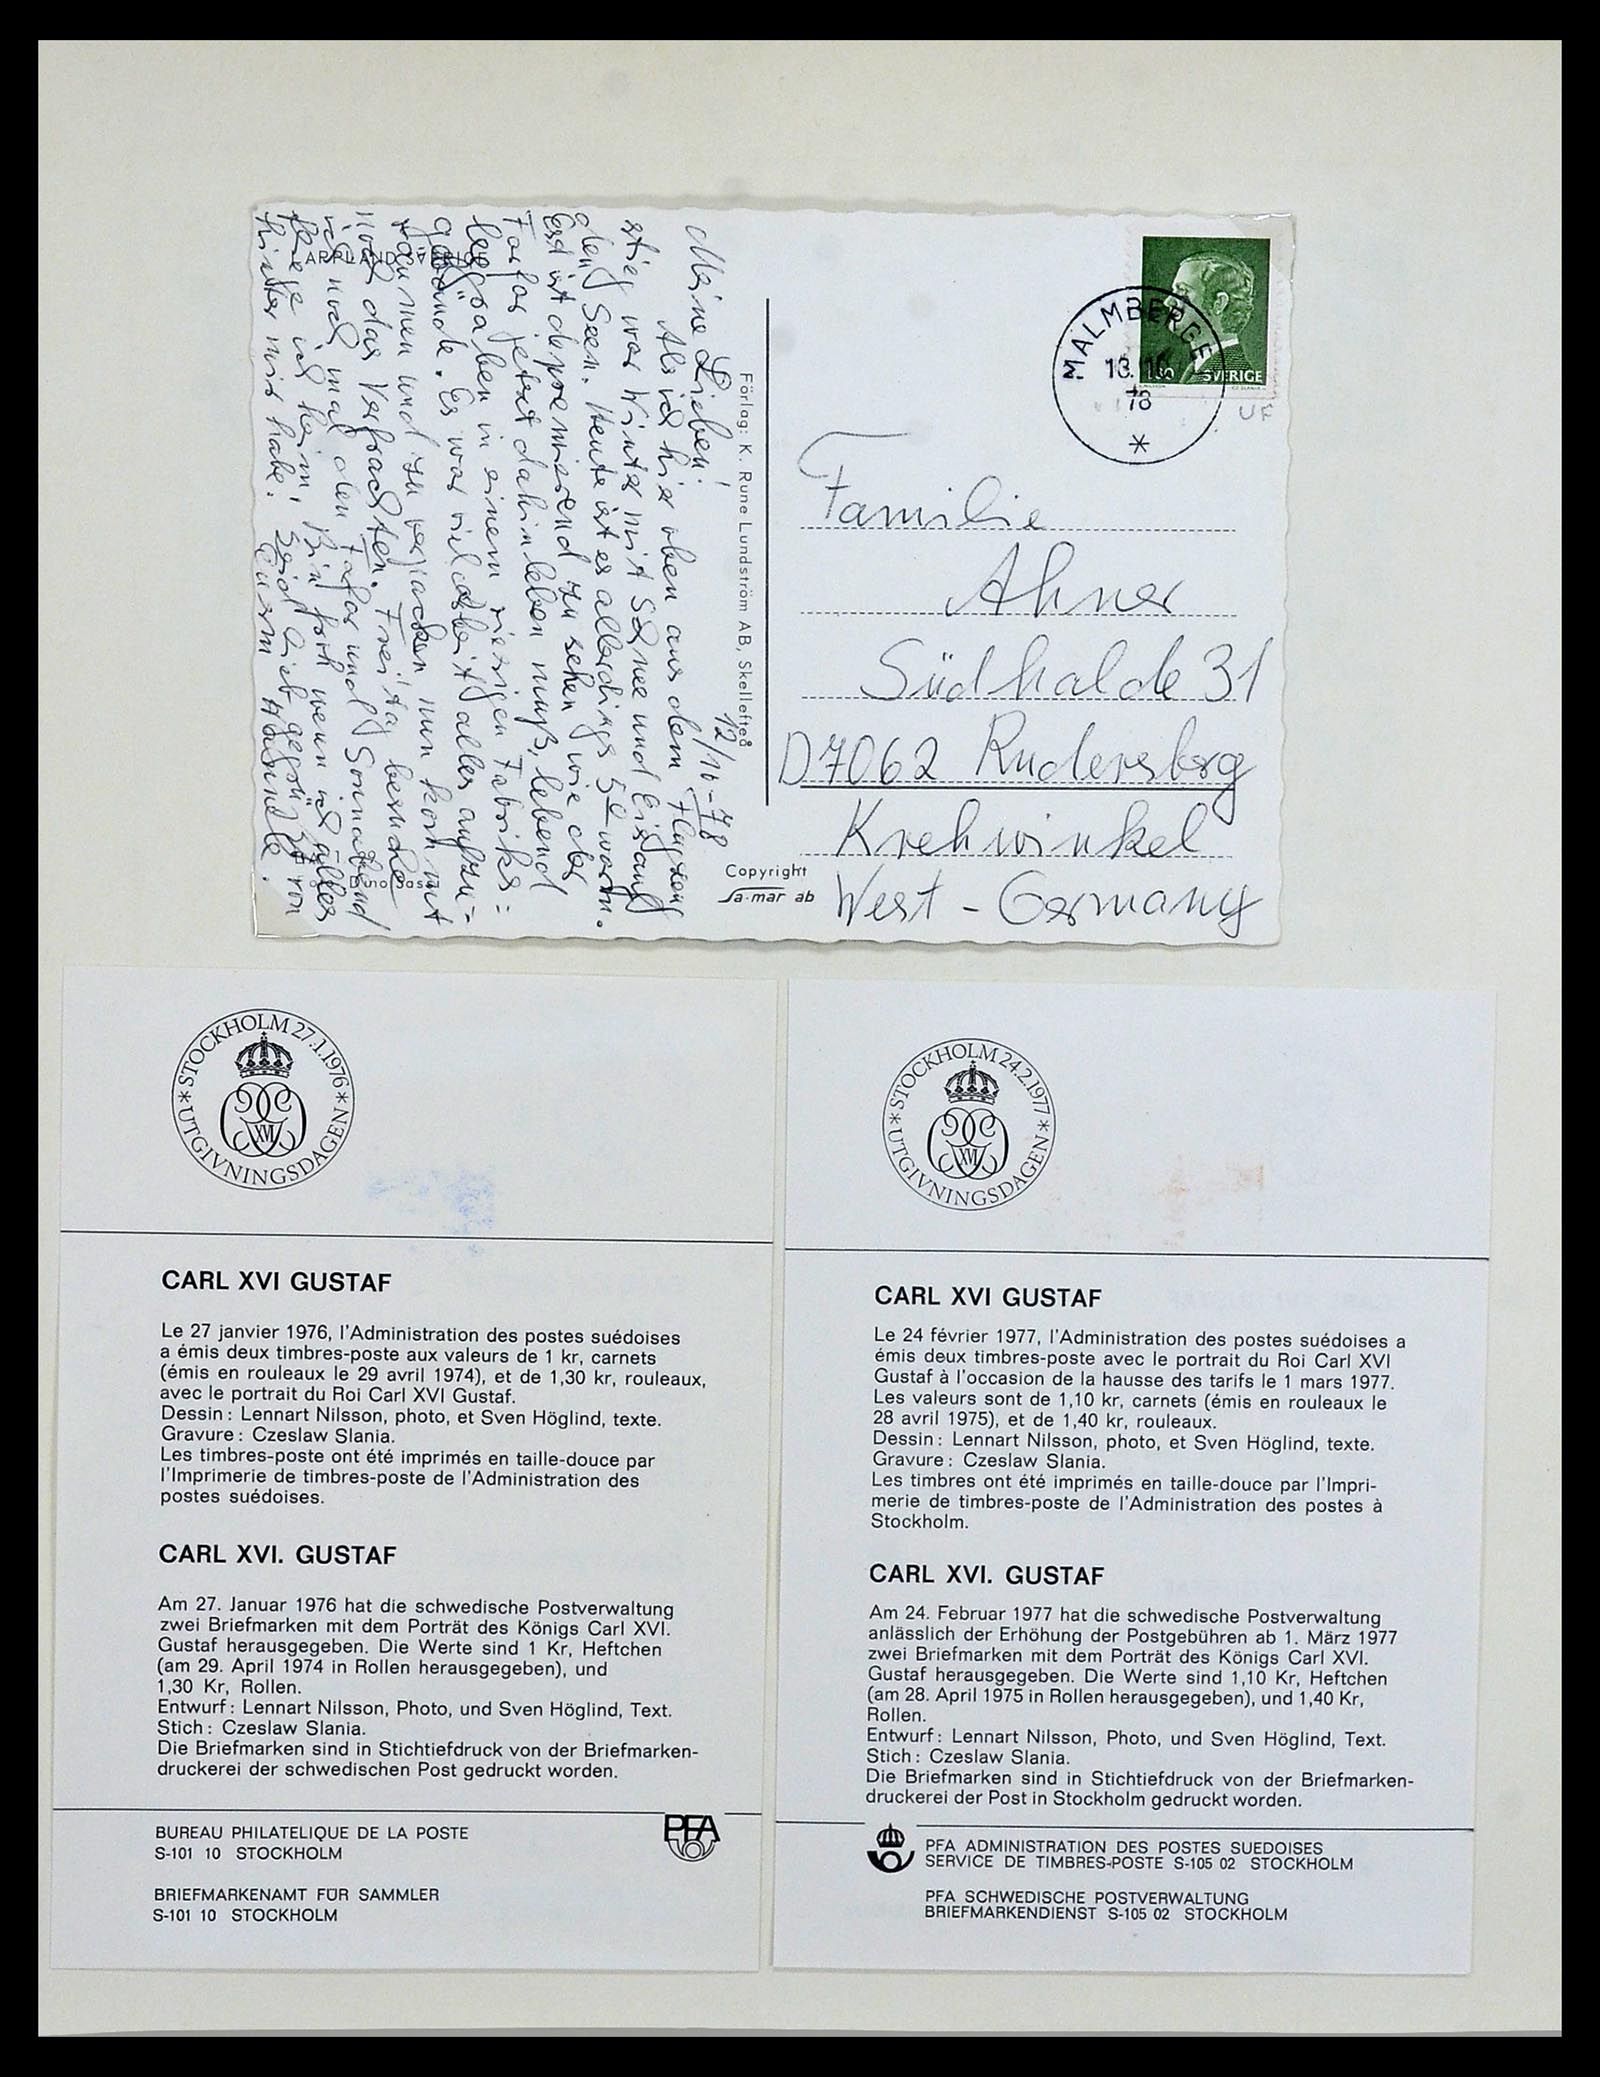 LAPPLAND SVERIGE
Meine Lieben!
12/10-78
Als ich hier oben aus dem Flugzeug
stieg war Winter mit Schnee und Eis auf
den Seen. Heute ist es allerdings 5° warm.
Es ist deprimierend zu sehen wie der
jetzt dahinleben muß, lebend
begraben in einem riesigen Fabriks=
gebäude. Es war viel Arbeit alles aufzu=
räumen und zu verpacken nun kommt
noch das Verfrachten. Freitag besuche
ich noch mal den und Sonnabend
fliege ich heim. Bin froh wenn ich alles
hinter mir habe. Seid lieb gegrüßt von
Eurem
Förlag: K. Rune Lundström AB, Skellefteå
Copyright
Sa-mar ab
MALMBERGET
13.10.
78
SVERIGE
UF
Familie
Ahner
Südhalde 31
D7062 Rudersberg
Krehwinkel
West-Germany
* STOCKHOLM 27.1.1976 * UTGIVNINGSDAGEN
XVI
CARL XVI GUSTAF
Le 27 janvier 1976, l'Administration des postes suédoises
a émis deux timbres-poste aux valeurs de 1 kr, carnets
(émis en rouleaux le 29 avril 1974), et de 1,30 kr, rouleaux,
avec le portrait du Roi Carl XVI Gustaf.
Dessin: Lennart Nilsson, photo, et Sven Höglind, texte.
Gravure: Czeslaw Slania.
Les timbres-poste ont été imprimés en taille-douce par
l'Imprimerie de timbres-poste de l'Administration des
postes suédoises.
CARL XVI. GUSTAF
Am 27. Januar 1976 hat die schwedische Postverwaltung
zwei Briefmarken mit dem Porträt des Königs Carl XVI.
Gustaf herausgegeben. Die Werte sind 1 Kr, Heftchen
(am 29. April 1974 in Rollen herausgegeben), und
1,30 Kr, Rollen.
Entwurf: Lennart Nilsson, Photo, und Sven Höglind, Text.
Stich: Czeslaw Slania.
Die Briefmarken sind in Stichtiefdruck von der Briefmarken-
druckerei der schwedischen Post gedruckt worden.
BUREAU PHILATELIQUE DE LA POSTE
S-101 10 STOCKHOLM
BRIEFMARKENAMT FÜR SAMMLER
S-101 10 STOCKHOLM
PFA
* STOCKHOLM 24.2.1977 * UTGIVNINGSDAGEN
XVI
CARL XVI GUSTAF
Le 24 février 1977, l'Administration des postes suédoises a
émis deux timbres-poste avec le portrait du Roi Carl XVI
Gustaf à l'occasion de la hausse des tarifs le 1 mars 1977.
Les valeurs sont de 1,10 kr, carnets (émis en rouleaux le
28 avril 1975), et de 1,40 kr, rouleaux.
Dessin: Lennart Nilsson, photo, et Sven Höglind, texte.
Gravure: Czeslaw Slania.
Les timbres ont été imprimés en taille-douce par l'Impri-
merie de timbres-poste de l'Administration des postes à
Stockholm.
CARL XVI. GUSTAF
Am 24. Februar 1977 hat die schwedische Postverwaltung
anlässlich der Erhöhung der Postgebühren ab 1. März 1977
zwei Briefmarken mit dem Porträt des Königs Carl XVI.
Gustaf herausgegeben. Die Werte sind 1,10 Kr, Heftchen
(am 28. April 1975 in Rollen herausgegeben), und 1,40 Kr,
Rollen.
Entwurf: Lennart Nilsson, Photo, und Sven Höglind, Text.
Stich: Czeslaw Slania.
Die Briefmarken sind in Stichtiefdruck von der Briefmarken-
druckerei der Post in Stockholm gedruckt worden.
PFA ADMINISTRATION DES POSTES SUEDOISES
SERVICE DE TIMBRES-POSTE S-105 02 STOCKHOLM
PFA SCHWEDISCHE POSTVERWALTUNG
BRIEFMARKENDIENST S-105 02 STOCKHOLM